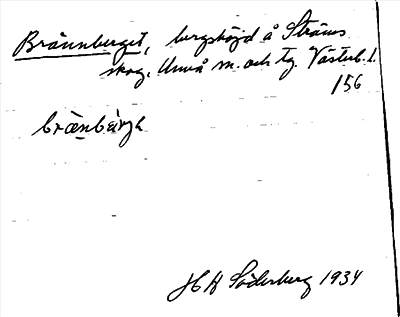 Brännberget, bergshöjd å Ströms
skog. Umeå m. och tg. Västerb. l.
156
brænbärjæ
H A Söderberg 1934